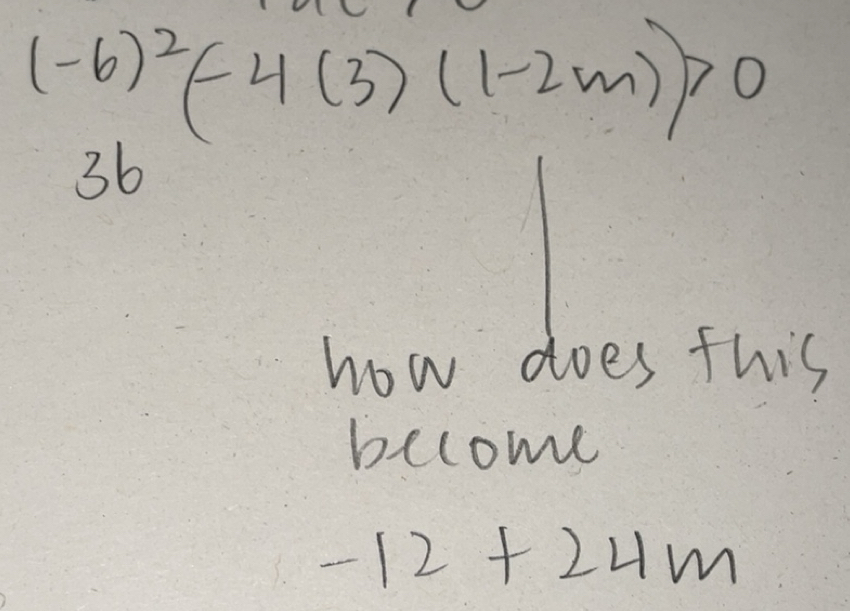 (-6)²(-4(3)(1-2m))>0
36
how does this
become
-12 + 24m